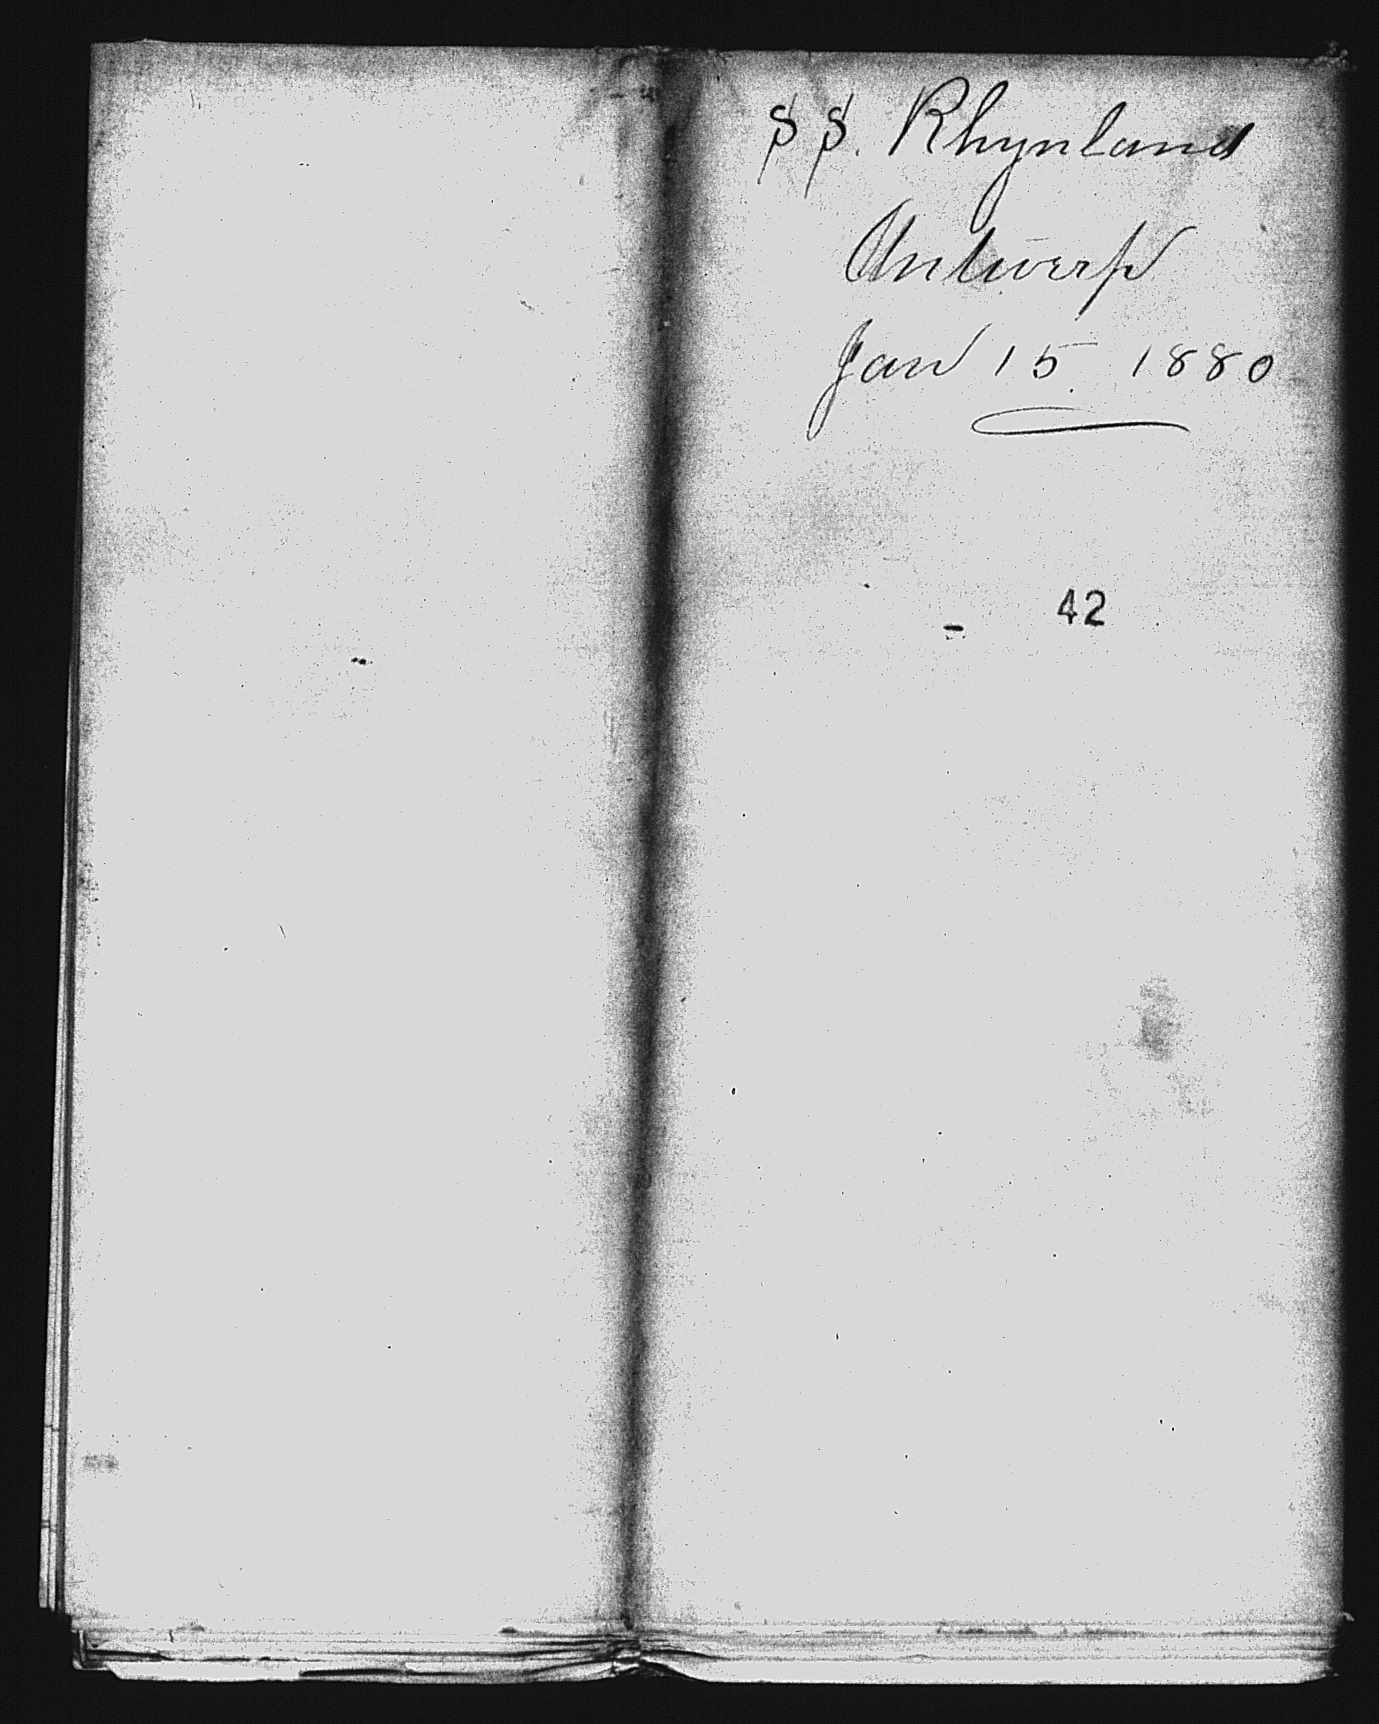 SS. Rhynland
Antwerp
Jan 15 1880
42